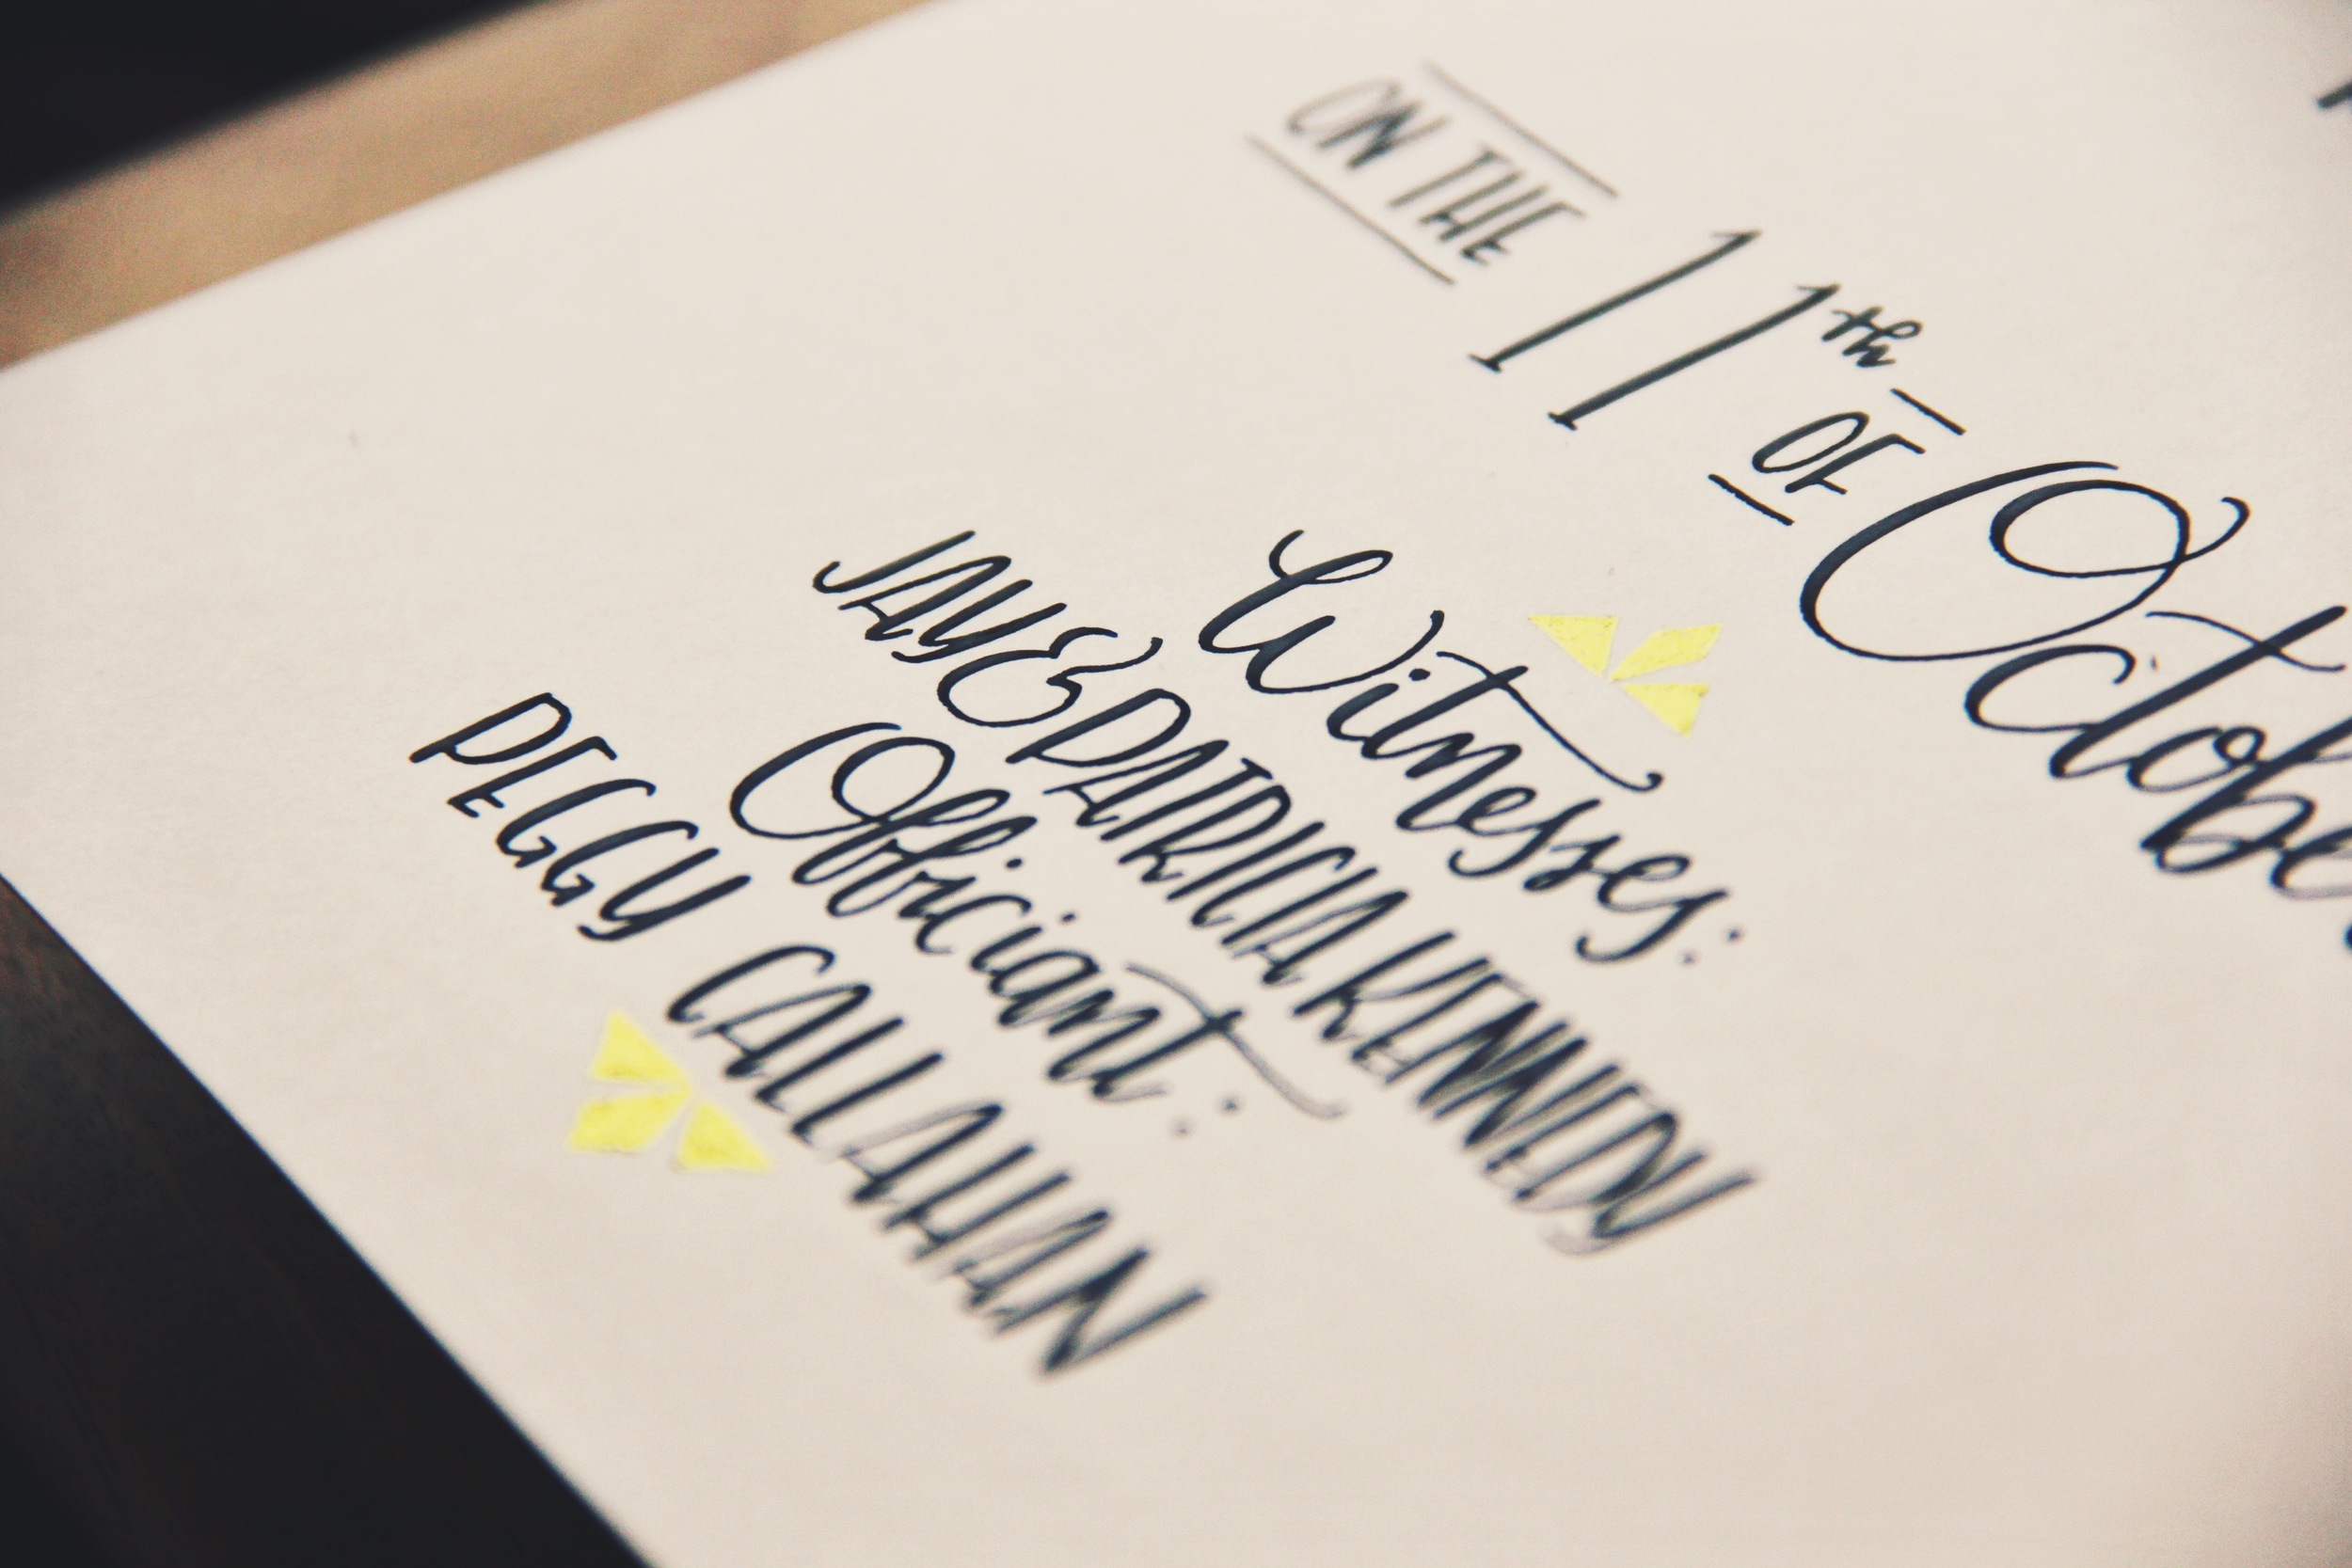 ON THE 11th OF October
Witnesses:
JAY & PATRICIA KENNEDY
Officiant:
PEGGY CALLAHAN